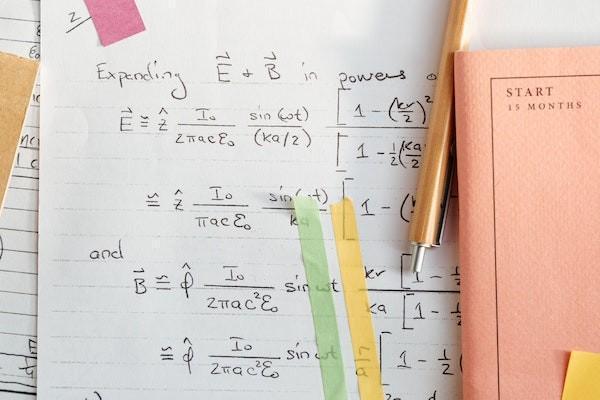 Expanding E⃗ & B⃗ in powers
E⃗ ≅ ẑ I₀/(2πacε₀) sin(ωt)/(ka/2) [1 - (kr/2)²
[1 - ½(ka/2
≅ ẑ I₀/(πacε₀) sin(ωt)/ka [1 - (
and
B⃗ ≅ φ̂ I₀/(2πac²ε₀) sin ωt kr/ka [1 - ½ / [1 - ½
≅ φ̂ I₀/(2πac²ε₀) sin ωt [1 - ½
START
15 MONTHS